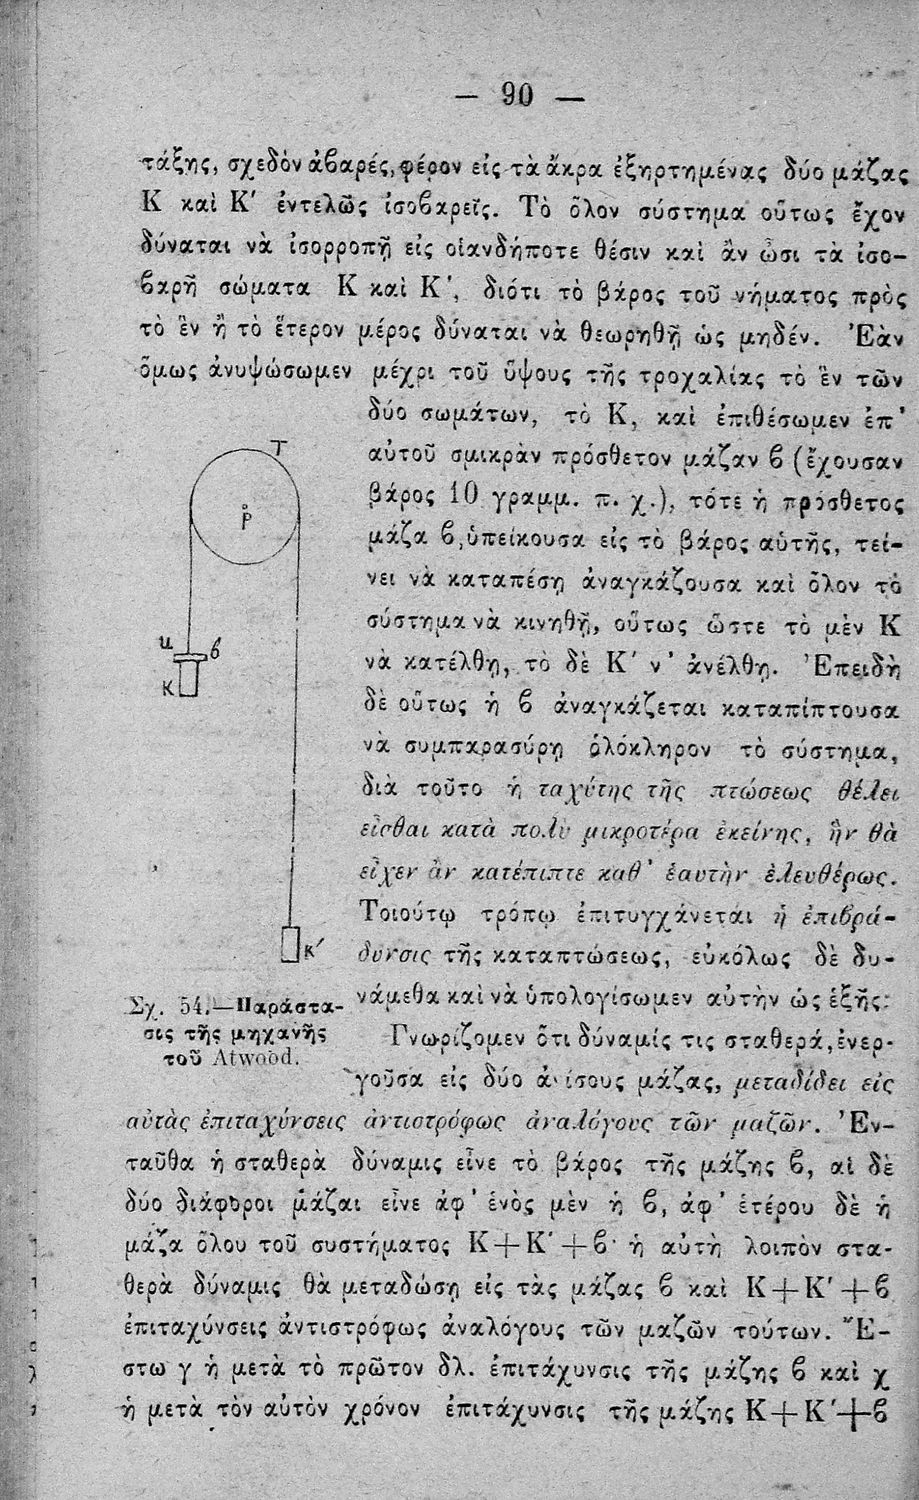 — 90 —
τάξης, σχεδὸν ἀϐαρές, φέρον εἰς τὰ ἄκρα ἐξηρτημένας δύο μάζας
Κ καὶ Κ′ ἐντελῶς ἰσοϐαρεῖς. Τὸ ὅλον σύστημα οὕτως ἔχον
δύναται νὰ ἰσορροπῇ εἰς οἱανδήποτε θέσιν καὶ ἂν ὦσι τὰ ἰσο-
ϐαρῆ σώματα Κ καὶ Κ′, διότι τὸ βάρος τοῦ νήματος πρὸς
τὸ ἓν ἢ τὸ ἕτερον μέρος δύναται νὰ θεωρηθῇ ὡς μηδέν. Ἐὰν
ὅμως ἀνυψώσωμεν μέχρι τοῦ ὕψους τῆς τροχαλίας τὸ ἓν τῶν
δύο σωμάτων, τὸ Κ, καὶ ἐπιθέσωμεν ἐπ’
αὐτοῦ σμικρὰν πρόσθετον μάζαν ϐ (ἔχουσαν
βάρος 10 γραμμ. π. χ.), τότε ἡ πρόσθετος
μάζα ϐ, ὑπείκουσα εἰς τὸ βάρος αὑτῆς, τεί-
νει νὰ καταπέσῃ ἀναγκάζουσα καὶ ὅλον τὸ
σύστημα νὰ κινηθῇ, οὕτως ὥστε τὸ μὲν Κ
νὰ κατέλθῃ, τὸ δὲ Κ′ ν’ ἀνέλθῃ. Ἐπειδὴ
δὲ οὕτως ἡ ϐ ἀναγκάζεται καταπίπτουσα
νὰ συμπαρασύρῃ ὁλόκληρον τὸ σύστημα,
διὰ τοῦτο ἡ ταχύτης τῆς πτώσεως θέλει
εἶσθαι κατὰ πολὺ μικροτέρα ἐκείνης, ἣν θὰ
εἶχεν ἂν κατέπιπτε καθ’ ἑαυτὴν ἐλευθέρως.
Τοιούτῳ τρόπῳ ἐπιτυγχάνεται ἡ ἐπιϐρά-
δυνσις τῆς καταπτώσεως, εὐκόλως δὲ δυ-
νάμεθα καὶ νὰ ὑπολογίσωμεν αὐτὴν ὡς ἑξῆς:
Τ
P
u
ϐ
K
K′
Σχ. 54.—Παράστα-
σις τῆς μηχανῆς
τοῦ Atwood.
Γνωρίζομεν ὅτι δύναμίς τις σταθερά, ἐνερ-
γοῦσα εἰς δύο ἀνίσους μάζας, μεταδίδει εἰς
αὐτὰς ἐπιταχύνσεις ἀντιστρόφως ἀναλόγους τῶν μαζῶν. Ἐν-
ταῦθα ἡ σταθερὰ δύναμις εἶνε τὸ βάρος τῆς μάζης ϐ, αἱ δὲ
δύο διάφοροι μάζαι εἶνε ἀφ’ ἑνὸς μὲν ἡ ϐ, ἀφ’ ἑτέρου δὲ ἡ
μάζα ὅλου τοῦ συστήματος Κ+Κ′+ϐ· ἡ αὐτὴ λοιπὸν στα-
θερὰ δύναμις θὰ μεταδώσῃ εἰς τὰς μάζας ϐ καὶ Κ+Κ′+ϐ
ἐπιταχύνσεις ἀντιστρόφως ἀναλόγους τῶν μαζῶν τούτων. Ἔ-
στω γ ἡ μετὰ τὸ πρῶτον δλ. ἐπιτάχυνσις τῆς μάζης ϐ καὶ χ
ἡ μετὰ τὸν αὐτὸν χρόνον ἐπιτάχυνσις τῆς μάζης Κ+Κ′+ϐ